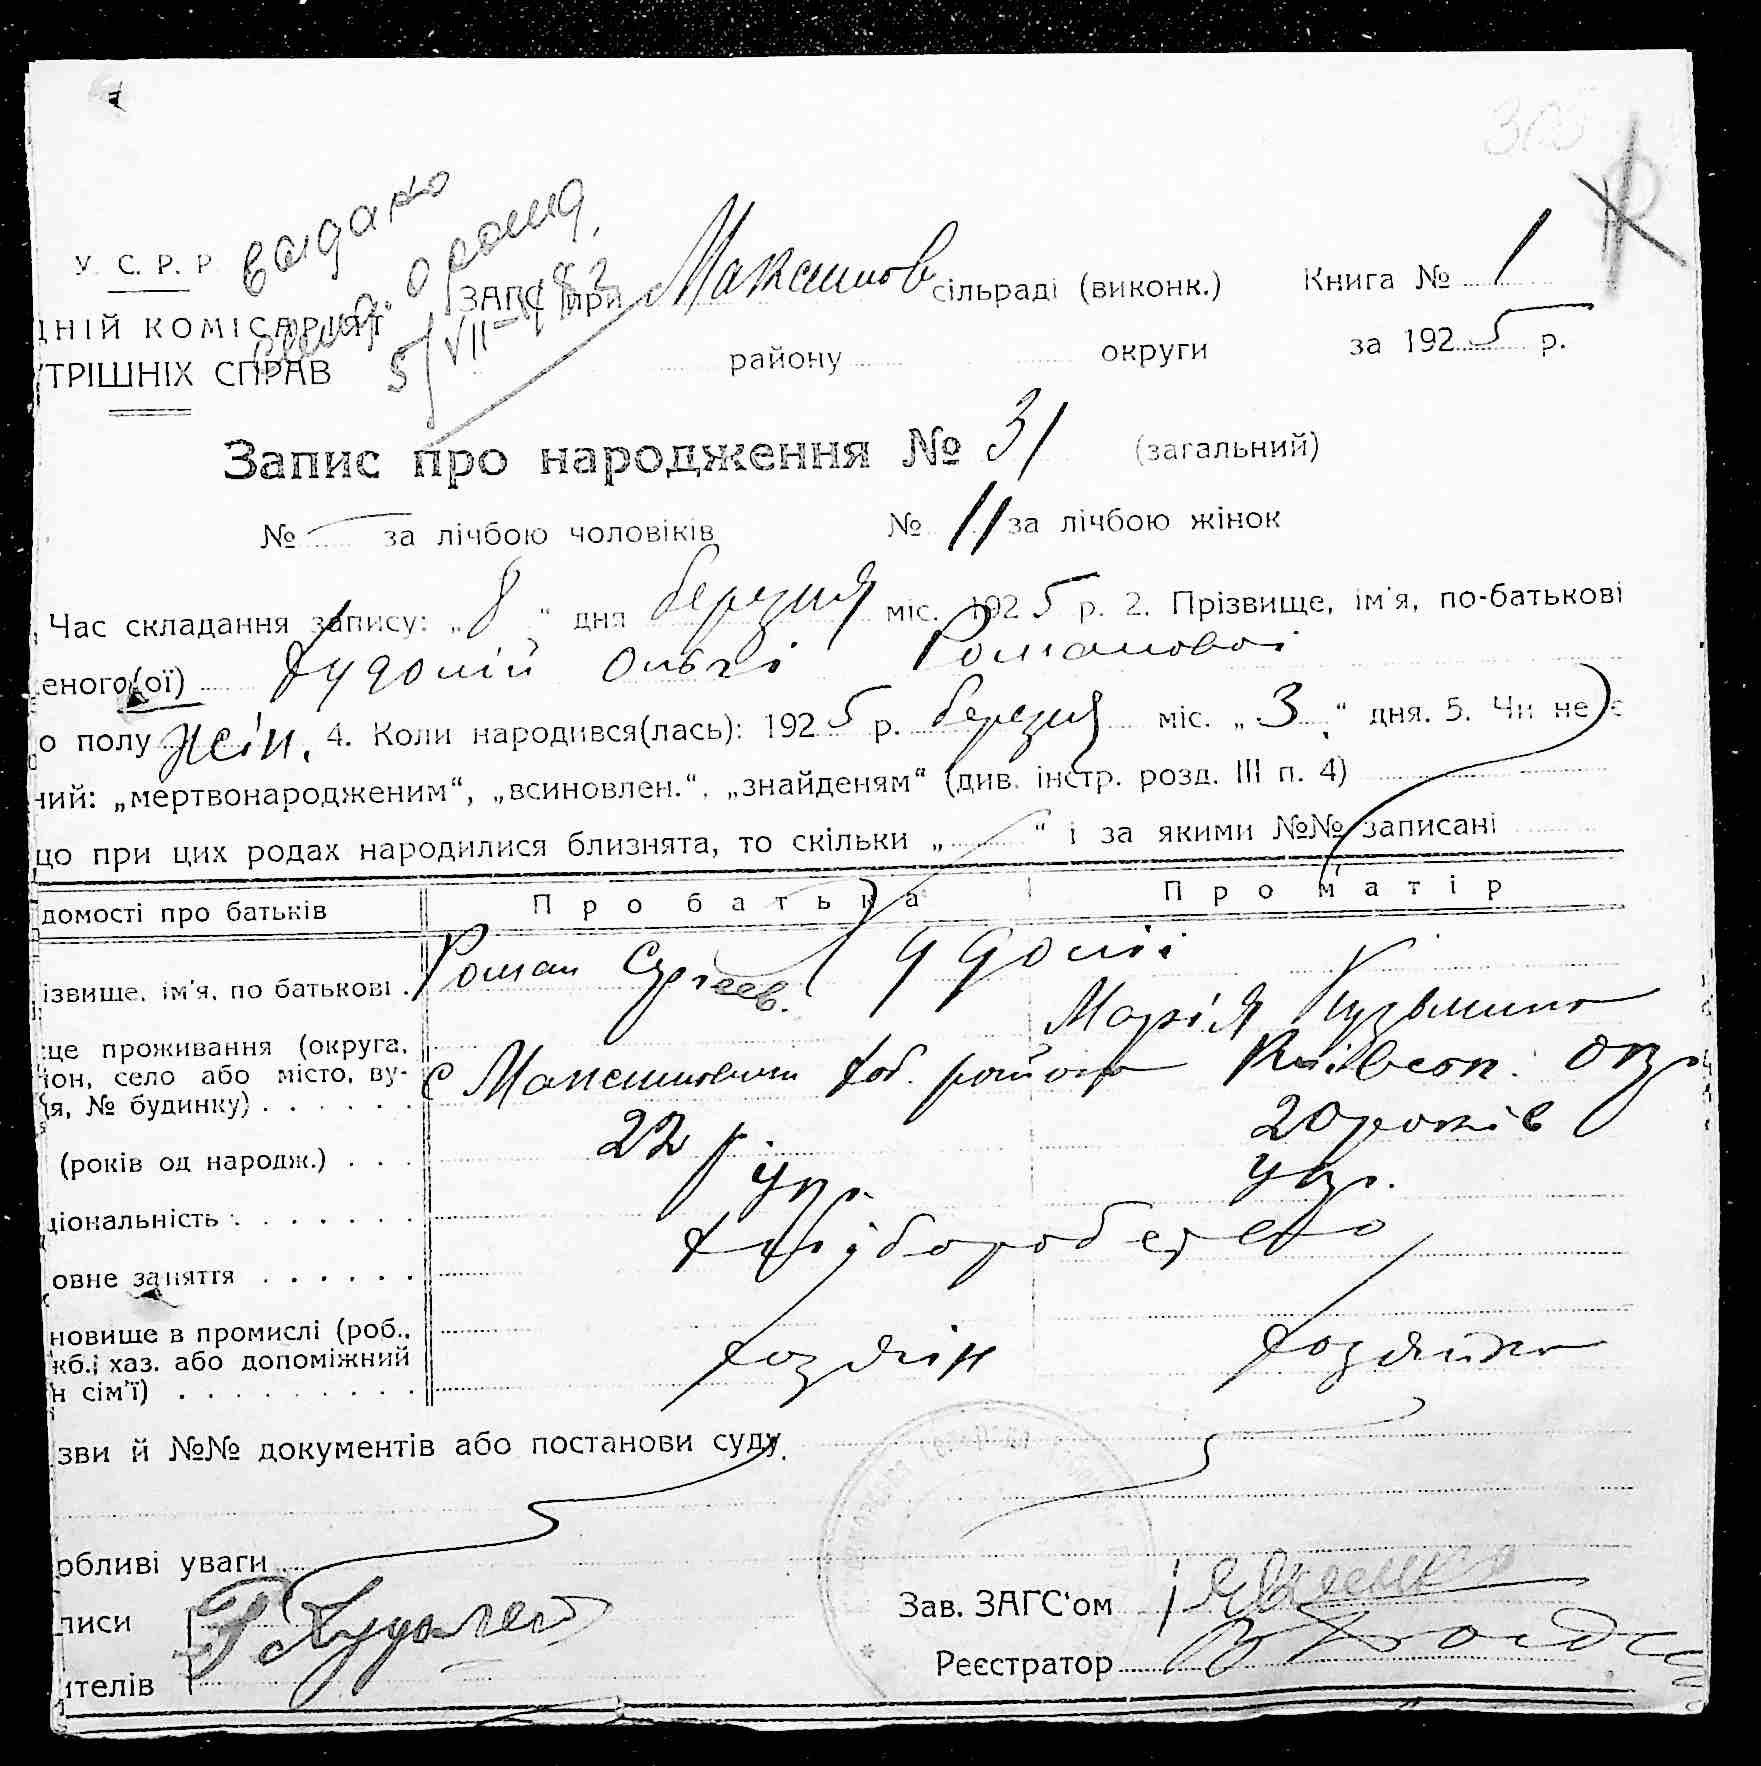 305
У. С. Р. Р.
видано
ЗАГС при Максимов сільраді (виконк.) Книга № 1
ДНІЙ КОМІСАРІЯТ
5/VII-
ТРІШНІХ СПРАВ
району округи за 1925 р.
Запис про народження № 31 (загальний)
№ — за лічбою чоловіків № 11 за лічбою жінок
Час складання запису: „8" дня березня міс. 1925 р. 2. Прізвище, ім'я, по-батькові
еного(ої) Худолій Ольгі Романовоі
о полу жін. 4. Коли народився(лась): 1925 р. березня міс. „3" дня. 5. Чи не є
ний: „мертвонародженим", „всиновлен.", „знайденям" (див. інстр. розд. III п. 4)
що при цих родах народилися близнята, то скільки „ " і за якими №№ записані
домості про батьків Про батька Про матір
Роман Сергеев. Худоліі
ізвище, ім'я, по батькові . Марія Кузьминична
це проживання (округа,
іон, село або місто, ву- с Максимовки
я, № будинку) . . . . . .
22 р. 20 років
(років од народж.) . . .
укр. укр.
ціональність . . . . . . .
хліборобство
овне заняття . . . . . .
новище в промислі (роб.,
кб.; хаз. або допоміжний хозяін хозяйка
н сім'ї) . . . . . . . . .
зви й №№ документів або постанови суду.
обливі уваги
писи Р Худолей Зав. ЗАГС'ом
ителів Реєстратор